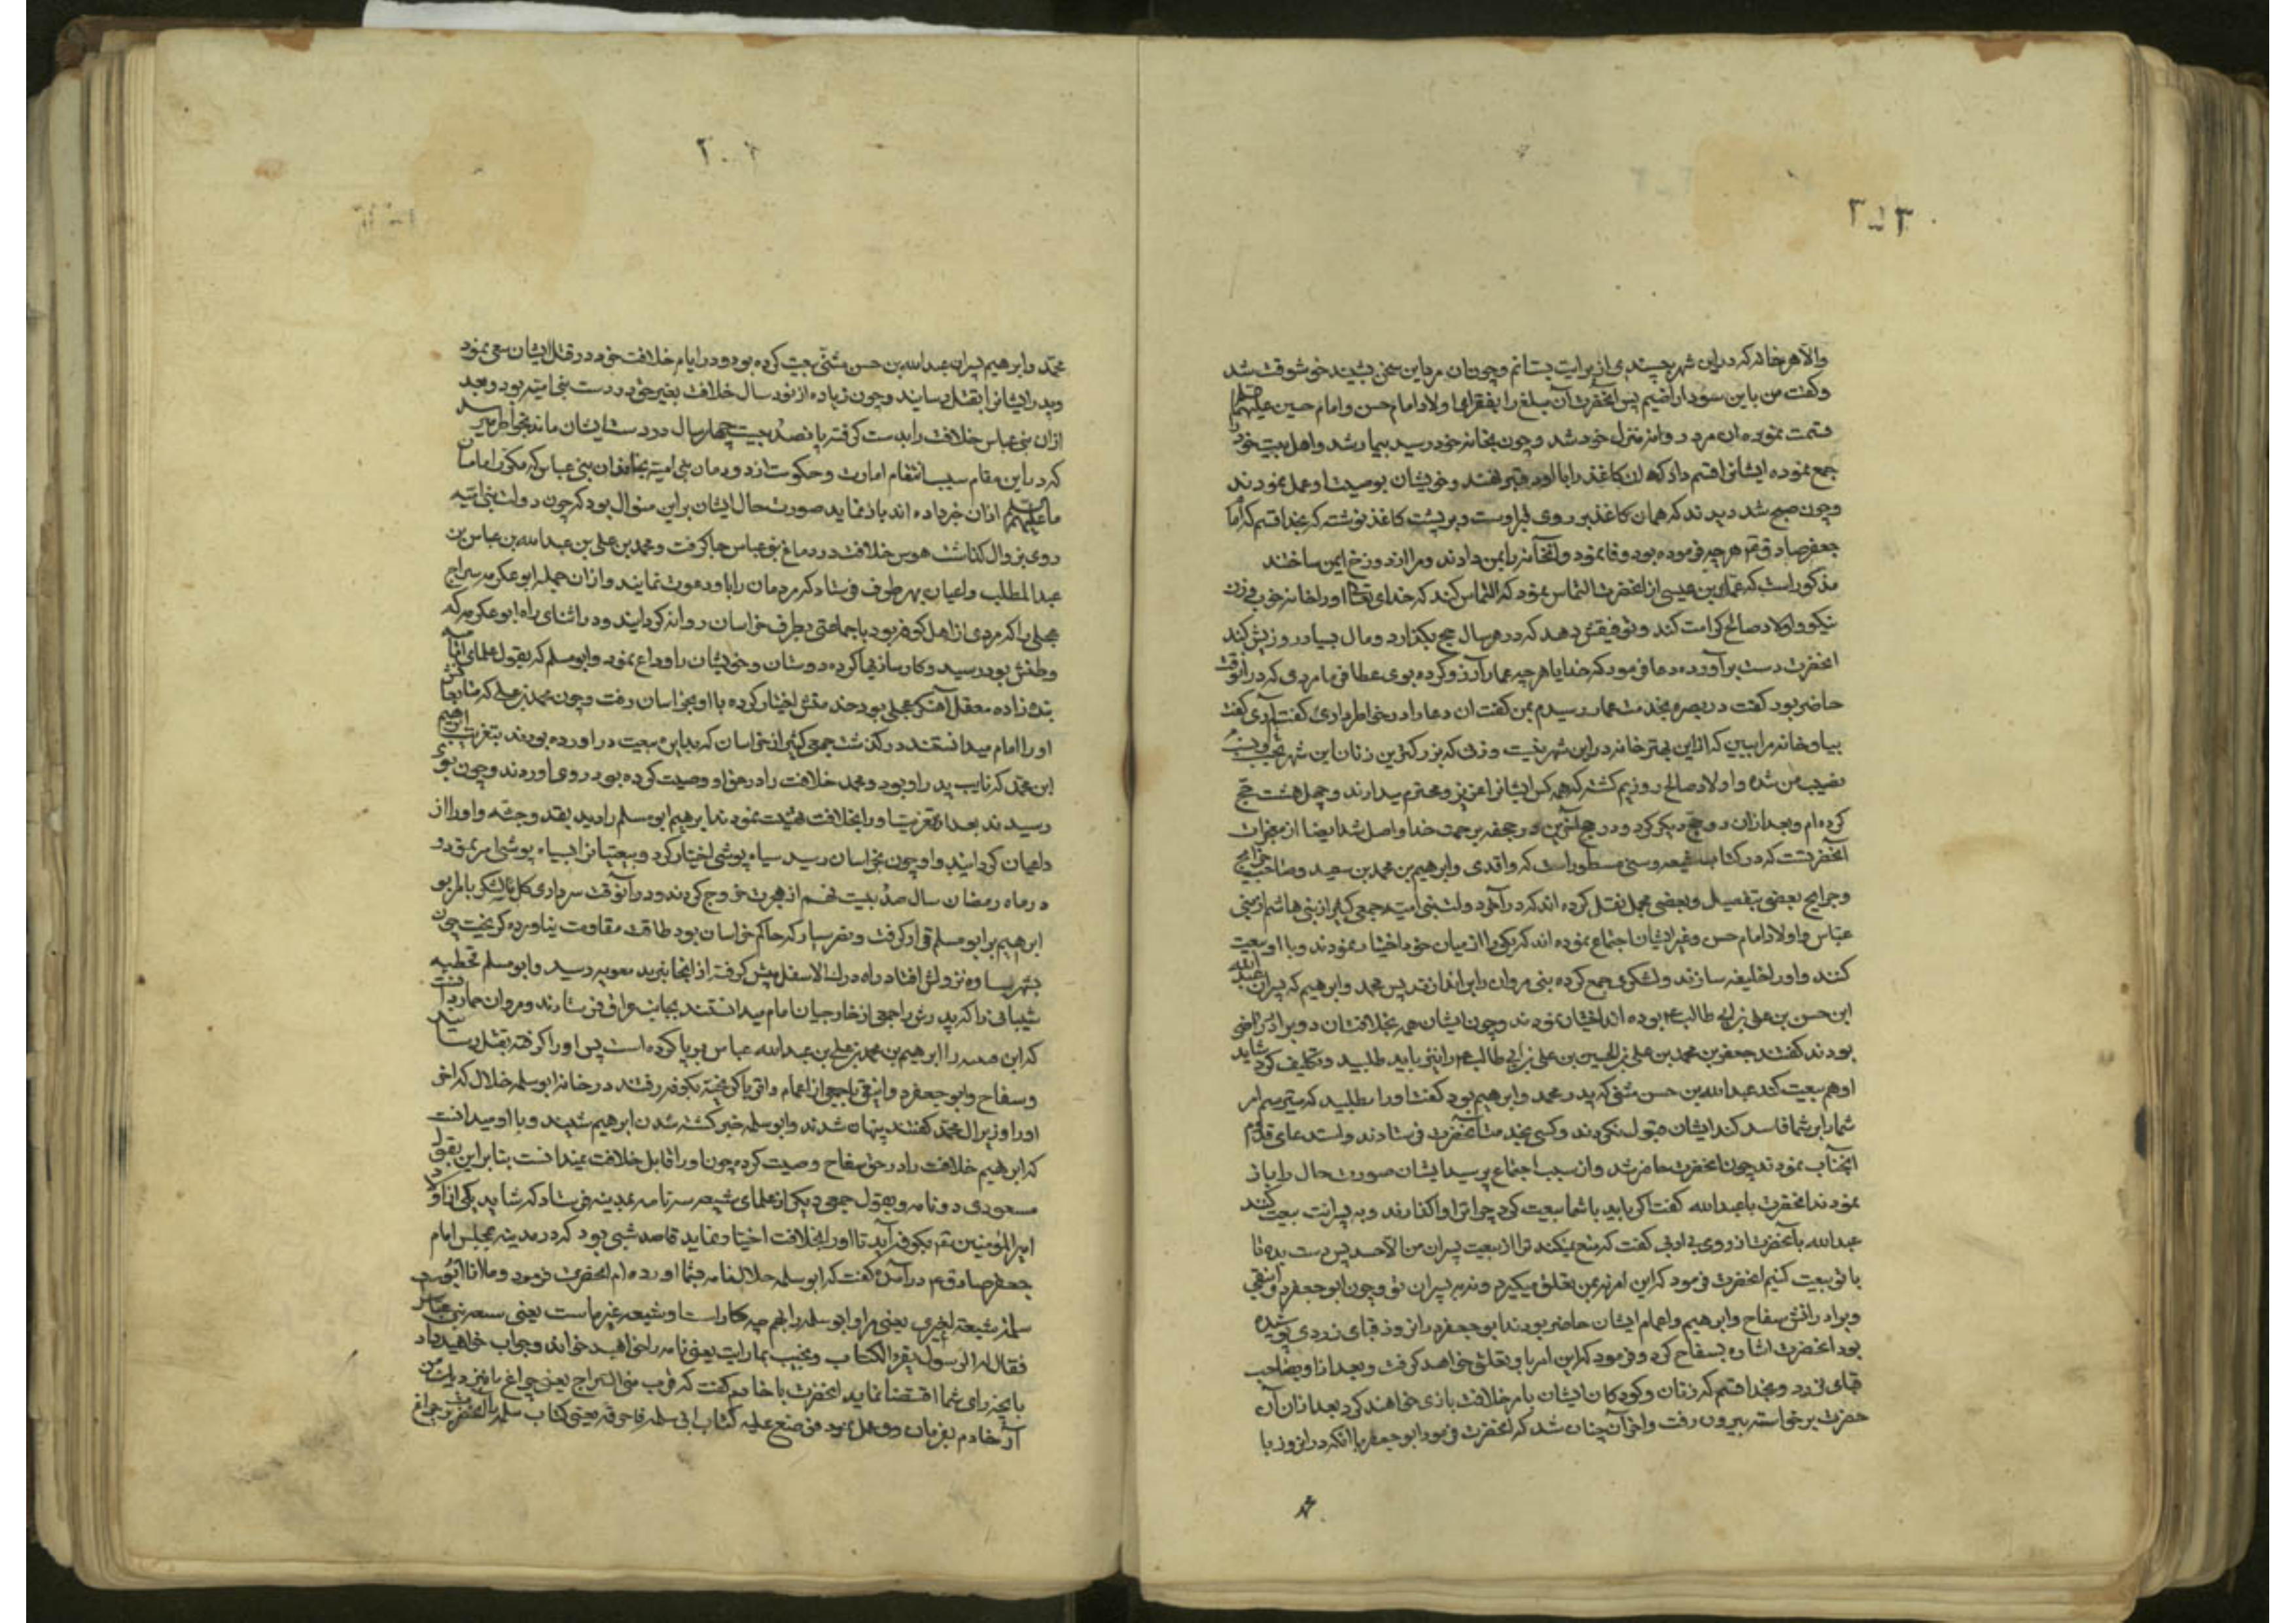 ۳۵۳
والا هر خانه که در این شهر چسپندی از برایت بستانم و چون ان مرد این سخن بشنید خوشوقت شد
و گفت من باین سودا راضیم پس آنحضرت آن مبلغ را بفقرای اولاد امام حسن و امام حسین علیهما السلم
قسمت نموده ان مرد روانه منزل خود شد و چون بخانه خود رسید بیمار شد و اهل بیت خود را
جمع نموده ایشانرا قسم داد که ان کاغذ را با او در قبر نهند و خویشان بوصیت او عمل نمودند
و چون صبح شد دیدند که همان کاغذ بر روی قبر اوست و بر پشت کاغذ نوشته که بخدا قسم که امام
جعفر صادق ع هر چه فرموده بود وفا نمود و آنخانه را بمن دادند و مرا از دوزخ ایمن ساختند
مذکور است که حماد بن عیسی از انحضرت التماس نمود که التماس کند که خدای تعالی او را خانه خوب و زن
نیکو و اولاد صالح کرامت کند و توفیقش دهد که در هر سال حج بگذارد و مال بسیار روزیش کند
انحضرت دست برآورده دعا فرمود که خدایا هر چه حماد آرزو کرده بوی عطا فرما مردی که در انوقت
حاضر بود گفت در بصره بخدمت حماد رسیدم بمن گفت ان دعا را در خاطر داری گفتم آری گفت
بیا و خانه مرا ببین که از این بهتر خانه در این شهر نیست و زنی که بزرگترین زنان این شهر
نصیب من شده و اولاد صالح روزیم گشته که همه کس ایشانرا عزیز و محترم میدارند و چهل هشت حج
کرده‌ام و بعد از ان دو حج دیگر کرد و در حج آخرین در جحفه برحمت خدا واصل شد ایضا از معجزات
آنحضرتست که در کتاب شیعه و سنی مسطور است که واقدی و ابرهیم بن محمد بن سعید و صاحب خرایج
و جرایح بعضی بتفصیل و بعضی مجمل نقل کرده اند که در آخر دولت بنی امیه جمعی کثیر از بنی هاشم از بنی
عباس و اولاد امام حسن و غیر ایشان اجتماع نموده اند که یکی را از میان خود اختیار نمودند و با او بیعت
کنند و او را خلیفه سازند و لشکری جمع کرده بنی مروان را براندازند پس محمد و ابرهیم که پسران عبد الله
ابن حسن بن علی بن ابی طالب ع بوده اند اختیار نمودند و چون ایشان همه بخلافت ان دو برادر راضی
بودند گفتند جعفر بن محمد بن علی بن الحسین بن علی بن ابی طالب ع را نیز باید طلبید و تکلیف کرد شاید
او هم بیعت کند عبد الله بن حسن مثنی که پدر محمد و ابرهیم بود گفت او را مطلبید که میترسم امر
شما را بر شما فاسد کند ایشان قبول نکردند و کسی بخدمت آنحضرت فرستادند و استدعای قدوم
انجناب نمودند چون انحضرت حاضر شد و از سبب اجتماع پرسید ایشان صورت حال را باز
نمودند انحضرت با عبد الله گفت اگر باید با شما بیعت کرد چرا ترا واگذارند و به پسرانت بیعت کنند
عبد الله با آنحضرت از روی بی ادبی گفت که منع میکند ترا از بیعت پسران من الا حسد پس دست بده تا
با تو بیعت کنیم انحضرت فرمود که این امر نه بمن تعلق میگیرد و نه به پسران تو و چون ابو جعفر دوانیقی
و برادرانش سفاح و ابرهیم و اعمام ایشان حاضر بودند ابو جعفر در انروز قبای زردی پوشیده
بود انحضرت اشاره بسفاح کرد و فرمود که این امر باو تعلق خواهد گرفت و بعد از او بصاحب
قبای زرد و بخدا قسم که زنان و کودکان ایشان بامر خلافت بازی خواهند کرد بعد از ان آن
حضرت برخواسته بیرون رفت و اخر آن چنان شد که انحضرت فرمود ابو جعفر با انکه در انروز با
محمد و ابرهیم پسران عبد الله بن حسن مثنی بیعت کرده بود و در ایام خلافت خود در قتل ایشان سعی نمود
و پدر ایشانرا بقتل رسانید و چون زیاده از نود سال خلافت بغیر حق در دست بنی امیه بود و بعد
ازان بنی عباس خلافت را بدست گرفته پانصد بیست چهار سال در دست ایشان ماند بخواطر میرسد
که در این مقام سبب انتقام امارت و حکومت از دودمان بنی امیه بخاندان بنی عباس که مکررا امامان
ما علیهم السلم ازان خبر داده اند باز نماید صورت حال ایشان بر این منوال بود که چون دولت بنی امیه
روی بزوال گذاشت هوس خلافت در دماغ بنو عباس جا گرفت و محمد بن علی بن عبد الله بن عباس بن
عبد المطلب داعیان بهر طرف فرستاد که مردمان را باو دعوت نمایند و ازان جمله ابو عکرمه سراج
عجلی را که مردی از اهل کوفه بود با جماعتی بطرف خراسان روانه گردانیند و در اثنای راه ابو عکرمه که
وطنش بود رسید و کارسازیها کرده دوستان و خویشان را وداع نمود و ابو مسلم که بقول علمای
بنده زاده معقل آهنگر عجلی بود خدمتش اختیار کرده با او بخراسان رفت و چون محمد بن علی که
او را امام میدانستند درگذشت جمعی کثیر از خراسان که بیا بیعت در آورده بودند بتعزیت ابرهیم
ابن محمد که نایب پدر او بود و محمد خلافت را در حق او وصیت کرده بود روی آوردند و چون
رسیدند بعد از تعزیت او را بخلافت تهنیت نمودند ابرهیم ابو مسلم را دید بقد و جثه و او را از
داعیان گردانید و او چون بخراسان رسید سیاه پوشی اختیار کرد و بیعتیانرا بسیاه پوشی امر نمود و
در ماه رمضان سال صد بیست نهم از هجرت خروج کردند و در آنوقت سرداری کل لشکر بامر
ابرهیم بر ابو مسلم قرار گرفت و نصر سیار که حاکم خراسان بود طاقت مقاومت نیاورده گریخت چون
بشهر ساوه نزولش افتاد راه درک الاسفل پیش گرفته از انجا بیزید معویه رسید و ابو مسلم قحطبه
شیبانی را که پدرش را جمعی از خارجیان امام میدانستند بجانب عراق فرستادند و مروان حمار دانست
که این صدمه را ابرهیم بن محمد بن علی بن عبد الله عباس برپا کرده است پس او را گرفته بقتل رسانید
و سفاح و ابو جعفر دوانیقی با جمعی از اعمام و اقربا گریخته بکوفه رفتند در خانه ابو سلمه خلال که اخر
او را وزیر آل محمد گفتند پنهان شدند و ابو سلمه خبر کشته شدن ابرهیم شنید و با او میدانست
که ابرهیم خلافت را در حق سفاح وصیت کرده چون او را قابل خلافت نمیدانست بنا بر این بقول
مسعودی دو نامه و بقول جمعی دیگر از علمای شیعه سه نامه بمدینه فرستاد که شاید یکی از اولاد
امیر المؤمنین ع بکوفه آید تا او را بخلافت اختیار نماید قاصد شبی بود که در مدینه بمجلس امام
جعفر صادق ع در آمده گفت که ابو سلمه خلال نامه بشما اورده ام انحضرت فرمود و ما لانا و ابو
سلمه شیعة لغیری یعنی مرا و ابو سلمه را بهم چه کار است او شیعه غیر ماست یعنی شیعه بنی عباس
فقال له الرسول یقرء الکتاب و یجیب بما رایت یعنی نامه را خواهید خواند و جواب خواهید داد
بانچه رای شما اقتضا نماید انحضرت با خادم گفت که قرب منی السراج یعنی چراغ را نزدیک من
آر خادم بفرمان وی عمل نمود فوضع علیه کتاب ابی سلمه فاحرقه یعنی کتاب سلمه را آنحضرت بر چراغ